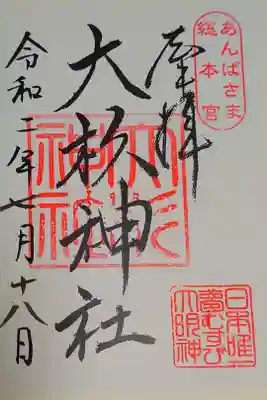 あんばさま
総本宮
奉拝
大杉神社
大杉
神社
令和二年七月十八日
日本唯一
夢むすび
大明神